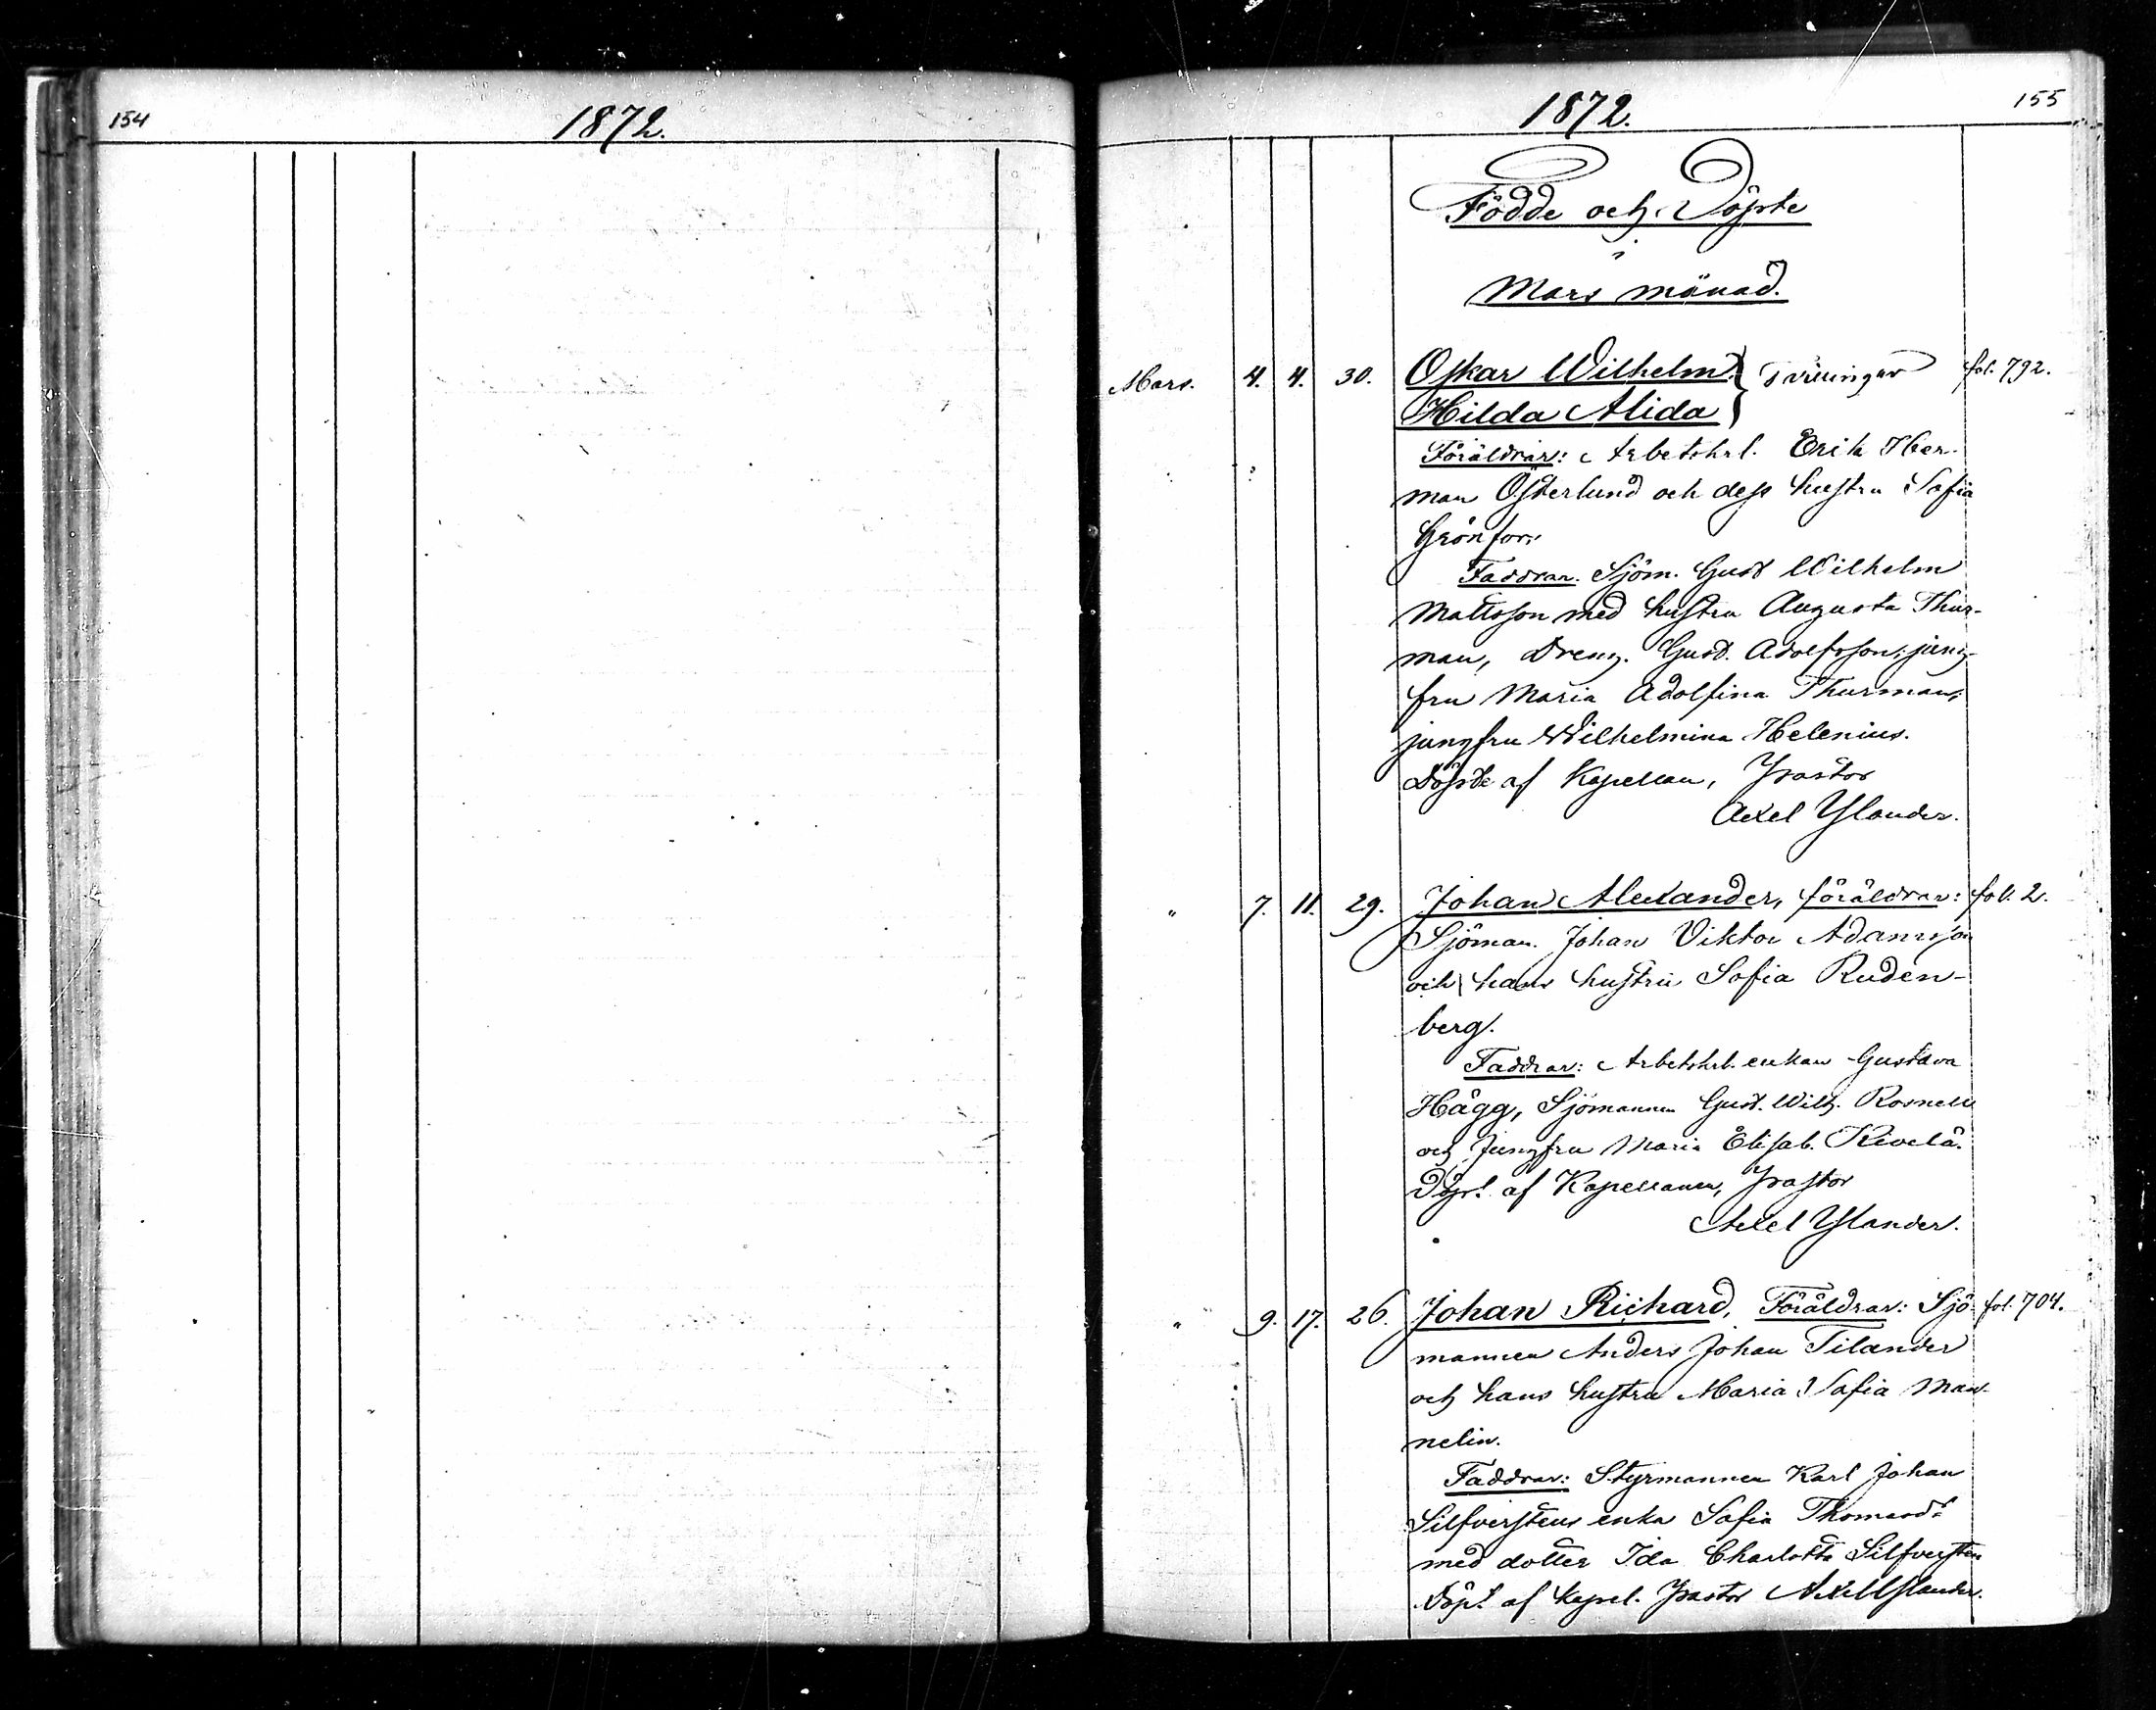 154
1872.
1872.
155
Födde och Döpte
i
Mars månad.
Mars. 4. 4. 30. Oskar Wilhelm } Tvillingar fol. 792.
Hilda Alida
Föräldrar: Arbetskrl. Erik Her-
man Österlund och dess hustru Sofia
Grönfors
Faddrar. Sjöm. Gust Wilhelm
Mattsson med hustru Augusta Thur-
man, Dreng. Gust. Adolfsson, jung-
fru Maria Adolfina Thurman,
jungfru Wilhelmina Helenius.
Döpte af Kapellan, Pastor
Axel Ylander.
" 7. 11. 29. Johan Alexander, föräldrar: fol. 2.
Sjöman. Johan Viktor Adamsson
och hans hustru Sofia Ruden-
berg.
Faddrar: Arbetskrl. enkan Gustava
Hägg, Sjömannen Gust. Wilh. Rosnell
och Jungfru Maria Elisab. Kivelä.
Döpt af Kapellanen, Pastor
Axel Ylander.
" 9. 17. 26. Johan Richard, Föräldrar: Sjö- fol. 704.
mannen Anders Johan Tilander
och hans hustru Maria Sofia Man-
nelin.
Faddrar: Styrmannen Karl Johan
Silfverstens enka Sofia
med dotter Ida Charlotta Silfversten
Döpt af Kapel. Pastor Axel Ylander.